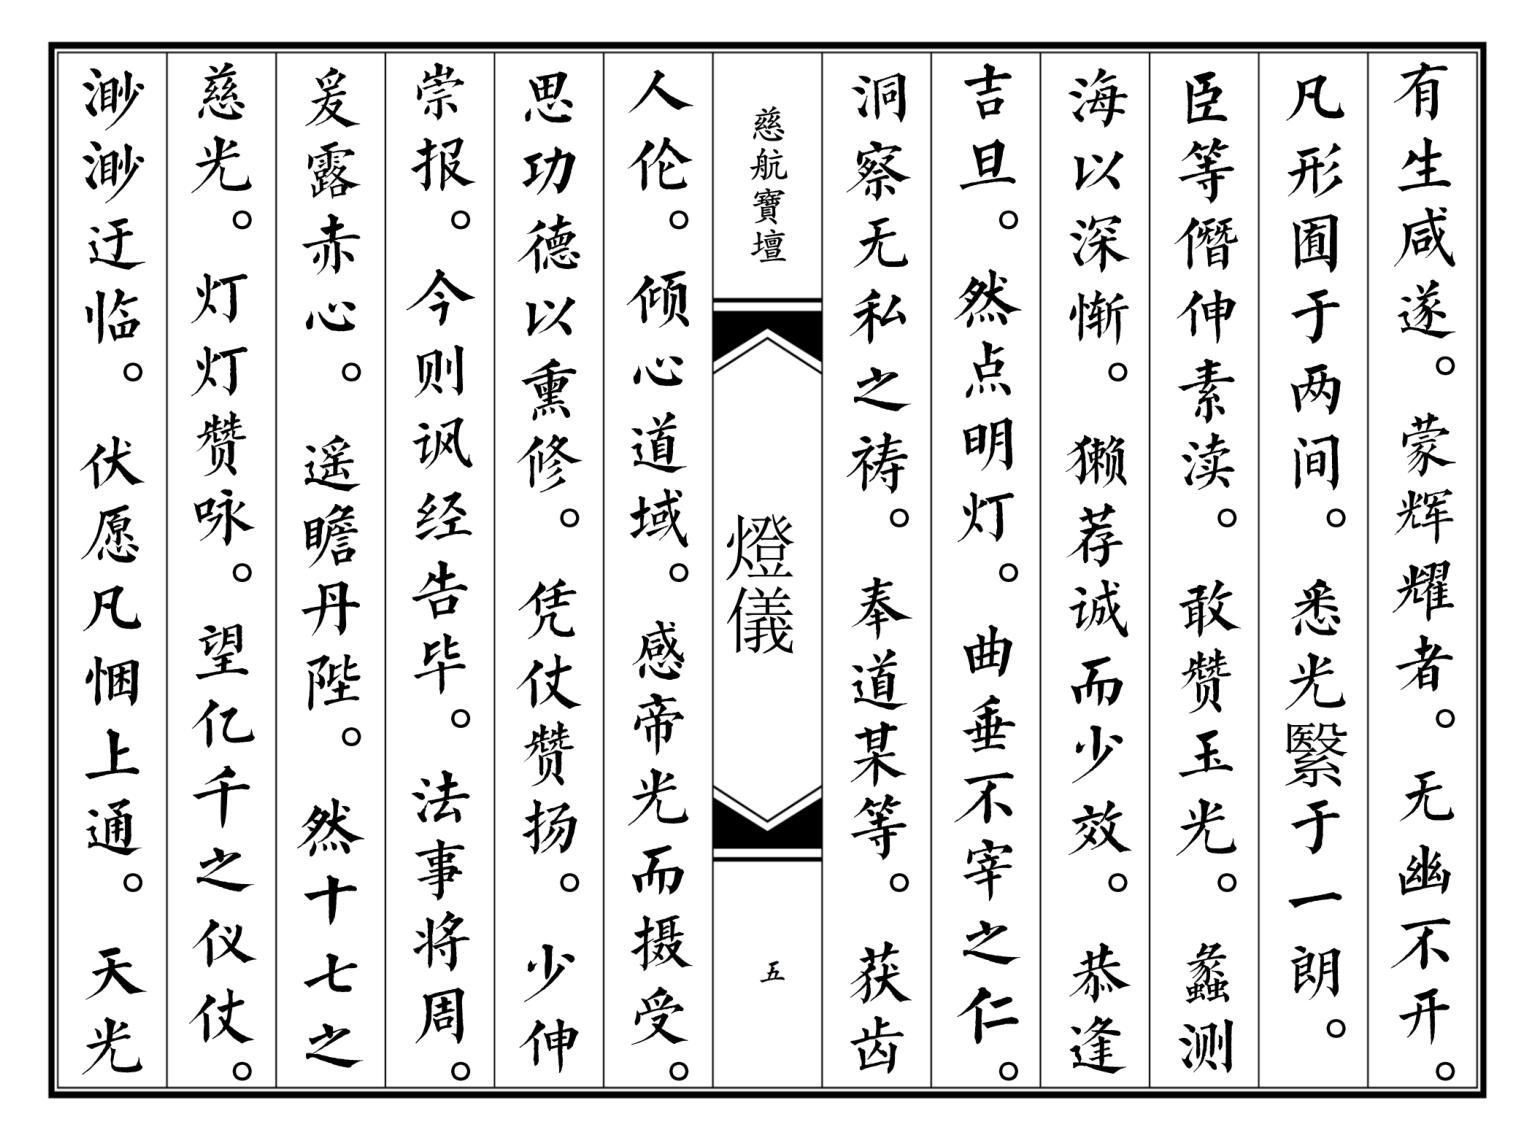 有生咸遂。蒙辉耀者。无幽不开。
凡形囿于两间。悉光繄于一朗。
臣等僭伸素渎。敢赞玉光。蠡测
海以深惭。獭荐诚而少效。恭逢
吉旦。然点明灯。曲垂不宰之仁。
洞察无私之祷。奉道某等。获齿
慈航寶壇
燈儀
五
人伦。倾心道域。感帝光而摄受。
思功德以熏修。凭仗赞扬。少伸
崇报。今则讽经告毕。法事将周。
爰露赤心。遥瞻丹陛。然十七之
慈光。灯灯赞咏。望亿千之仪仗。
渺渺迂临。伏愿凡悃上通。天光